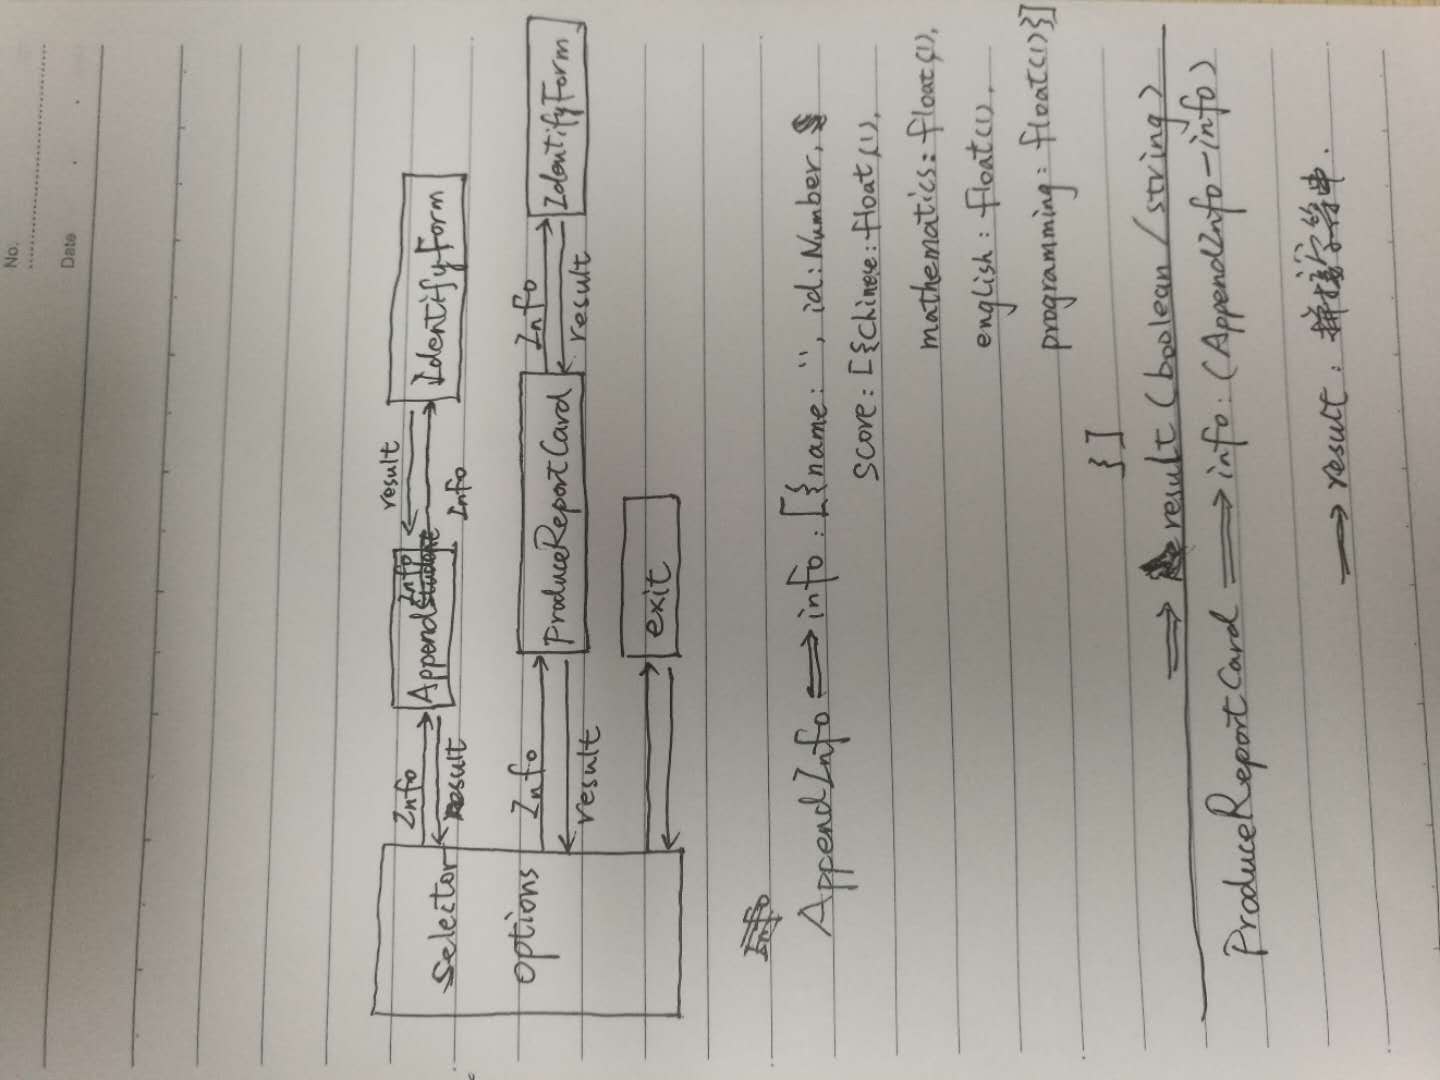 No.
Date
Selector
options
Info
result
AppendStudent
Info
result
Info
IdentifyForm
Info
result
ProduceReportCard
Info
result
IdentifyForm
exit
Info
AppendInfo ⟹ info : [{name : '', id : Number,
score : [{chinese : float(1),
mathematics : float(1),
english : float(1),
programming : float(1)}]
}]
⟹ result (boolean / string)
ProduceReportCard ⟹ info : (AppendInfo-info)
→ result : 拼接字符串.